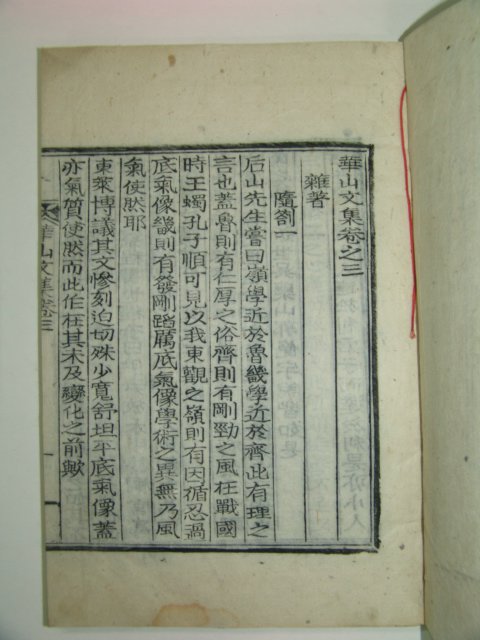 華山文集卷之三
雜著
隨劄一
后山先生嘗曰嶺學近於魯畿學近於齊此有理之
言也蓋魯則有仁厚之俗齊則有剛勁之風在戰國
時王蠋孔子順可見以我東觀之嶺則有因循忍過
底氣像畿則有發剛踏厲底氣像學術之異無乃風
氣使然耶
東萊博議其文慘刻迫切殊少寬舒坦平底氣像蓋
亦氣質使然而此作在其未及變化之前歟
華山文集卷三